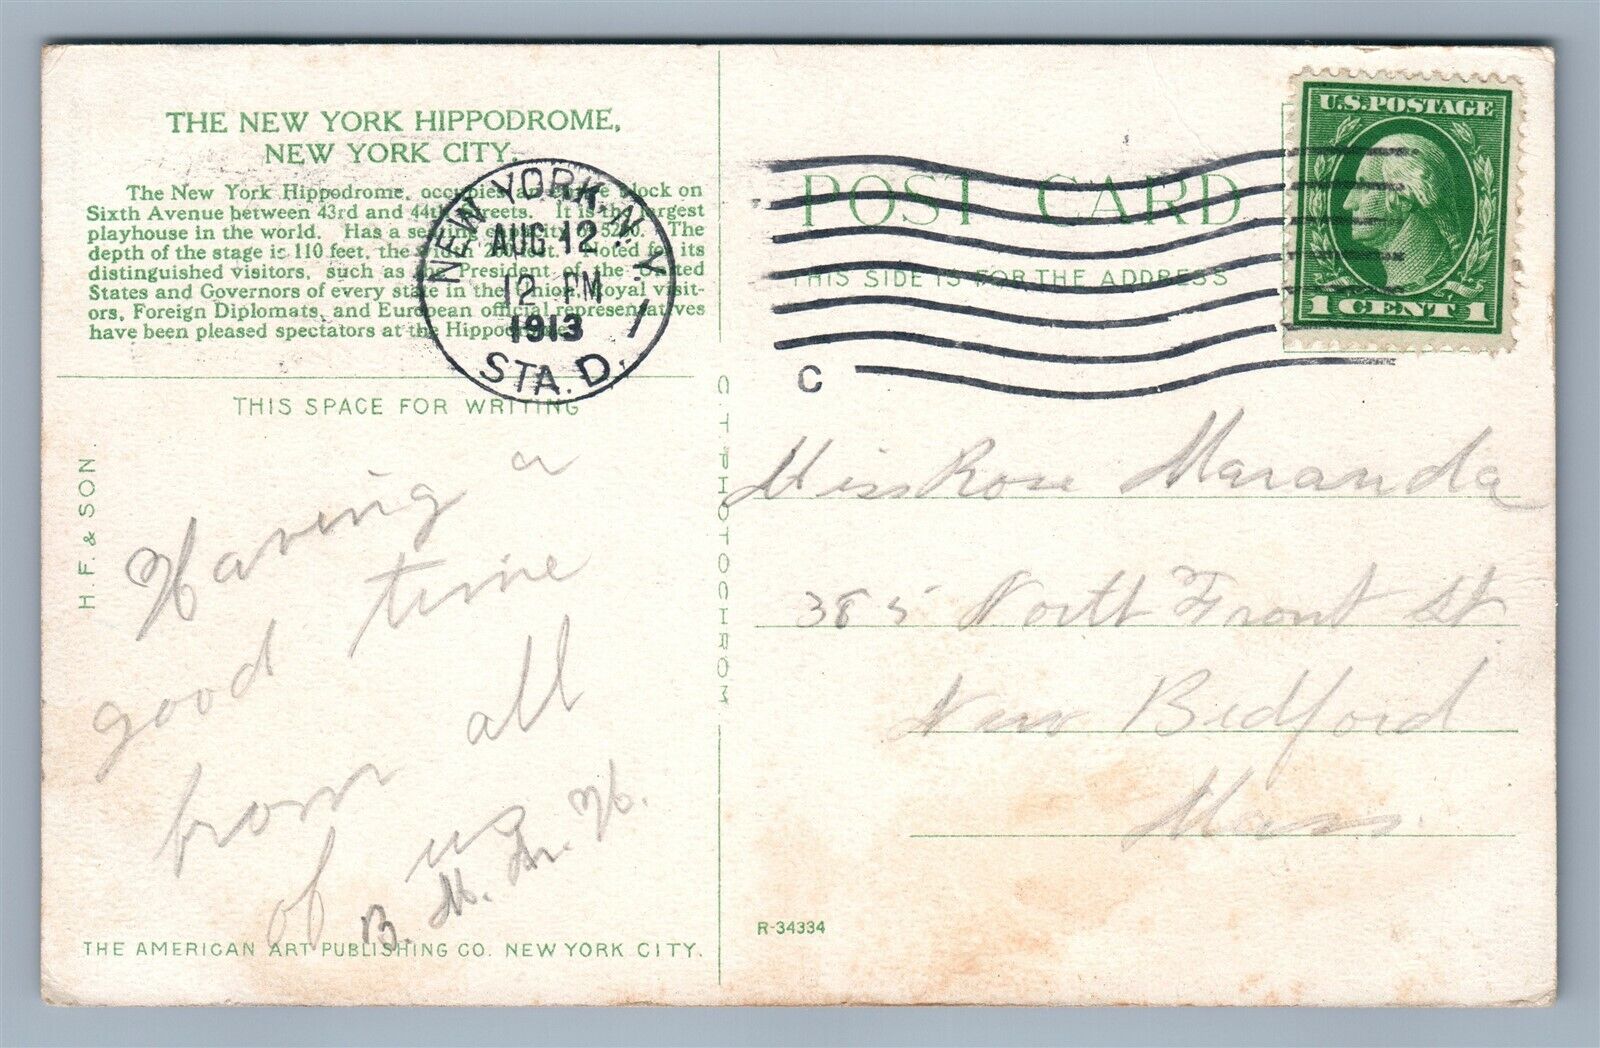 THE NEW YORK HIPPODROME,
NEW YORK CITY.
The New York Hippodrome, occupies an block on
Sixth Avenue between 43rd and 44th Streets. It is the largest
playhouse in the world. Has a seating capacity of 5200. The
depth of the stage is 110 feet, the Noted for its
distinguished visitors, such as the President of the United
States and Governors of every state in the Union. Royal visit-
ors, Foreign Diplomats, and European official representatives
have been pleased spectators at the Hippodrome.
THIS SPACE FOR WRITING
H. F. & SON.
Having a
good time
from all
of us
B. M.
THE AMERICAN ART PUBLISHING CO. NEW YORK CITY.
C. T. PHOTOCHROM
NEW YORK, N.Y.
AUG 12
12 PM
1913
STA. D.
1
C
POST CARD
THIS SIDE IS FOR THE ADDRESS
U.S. POSTAGE
1 CENT 1
Miss Rose Maranda
385 North Front St.
New Bedford
Mass.
R-34334